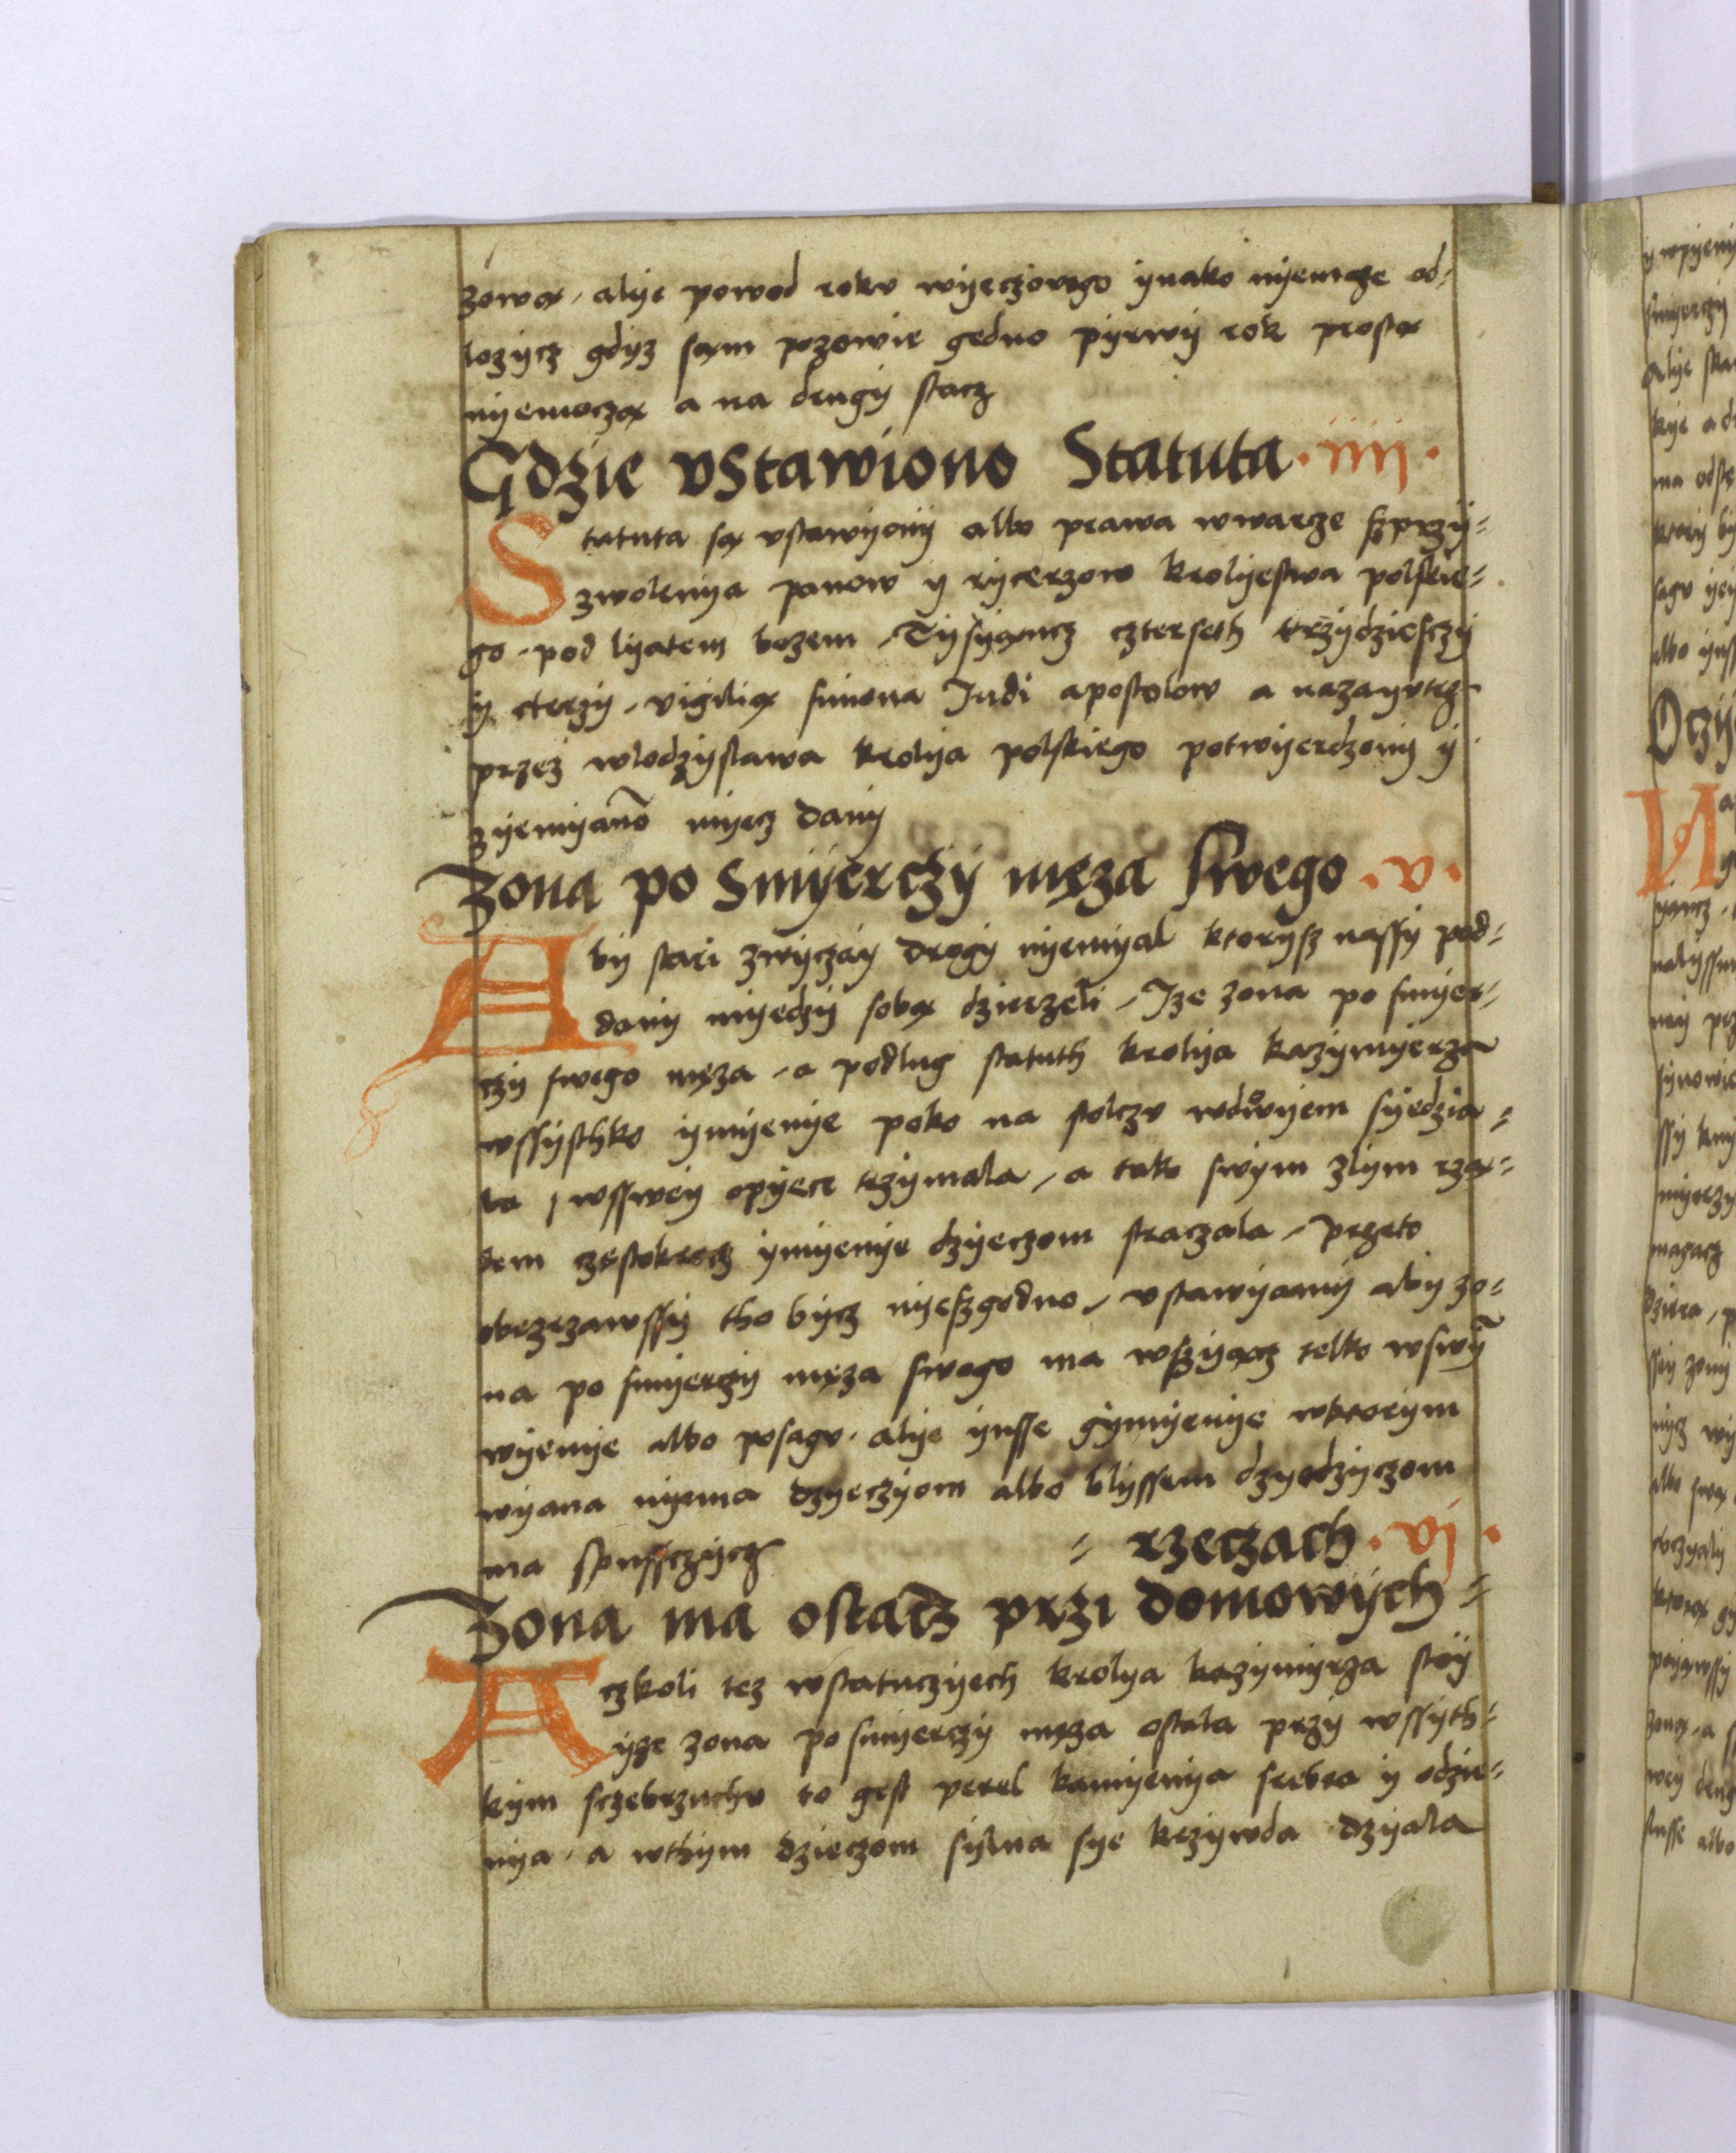 zowø, alye powod roku wyeczovego ynako nyemoze od-
lozycz gdyz søm pozowie gedno pyrwy rok prostø
nyemoczø a na drugy stacz
Gdzie vstawiono Statuta · iiij ·
Statuta sø vstawyony albo prawa wwarcze szprzy-
zwolenya panow y rycerzow krolyestwa polskie-
go · pod lyatem bozem, Tysyøncz czterseth trzydziesczy
y cterzy, vigiliø simona Judi apostolow a nazayutrz
przez wlodzyslawa krolya polskiego potwyerdzony y
zyemyanō myecz dany
Zona po Smyerczy mɇza swego · v ·
Aby stari zwyczay drogy nyemyal ktorysz nassy pod-
dany myedzy sobø dzierzeli, Jze zona po smyer-
czy swego mɇza, a podlug statuth krolya kazymyerza
wssysthko ymyenye poko na stolczu wdowyem syedzia-
la, wsswey opyece trzymala, a tako swym zlym rzø-
dem czɇstokrocz ymyenye dzyeczom straczala, przeto
obezrzawssy tho bycz nyeszgodno, vstawyamy aby zo-
na po smyerczy mɇza swego ma wszyøcz telko wswy̅
wyenye albo posagv · alye ynsse gymyenye wktorym
wyana nyema dzyeczyom albo blyssem dzyedzyczom
ma spussczycz = rzeczach · vj ·
Zona ma ostacz przi domowych =
Aczkoli tez wstatuczyech krolya kazymyrza stoy
yze zona po smyerczy mɇza ostala przy wssyth-
kym sczebrzuchv to gest perel kamyenya srebra y odzie-
nya · a wthym dzieczom sylna sye krzywda dzyala